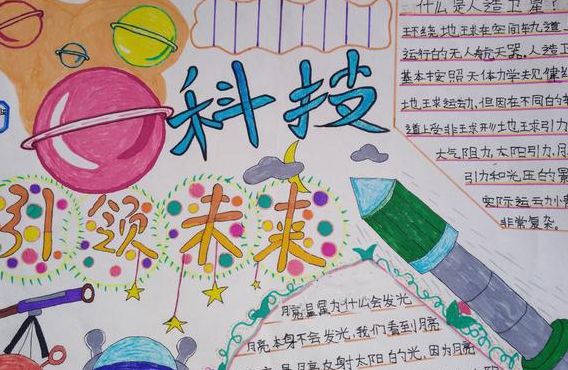 科技
引领未来
什么是人造卫星?
环绕地球在空间轨道上
运行的无人航天器。人造卫
基本按照天体力学规律
地球运动,但因在不同的
道上受非球形地球引力
大气阻力,太阳引力,月
引力和光压的
实际运动
非常复杂。
月亮星星为什么会发光
月亮本身不会发光,我们看到月亮
是月亮反射太阳的光,因为月亮